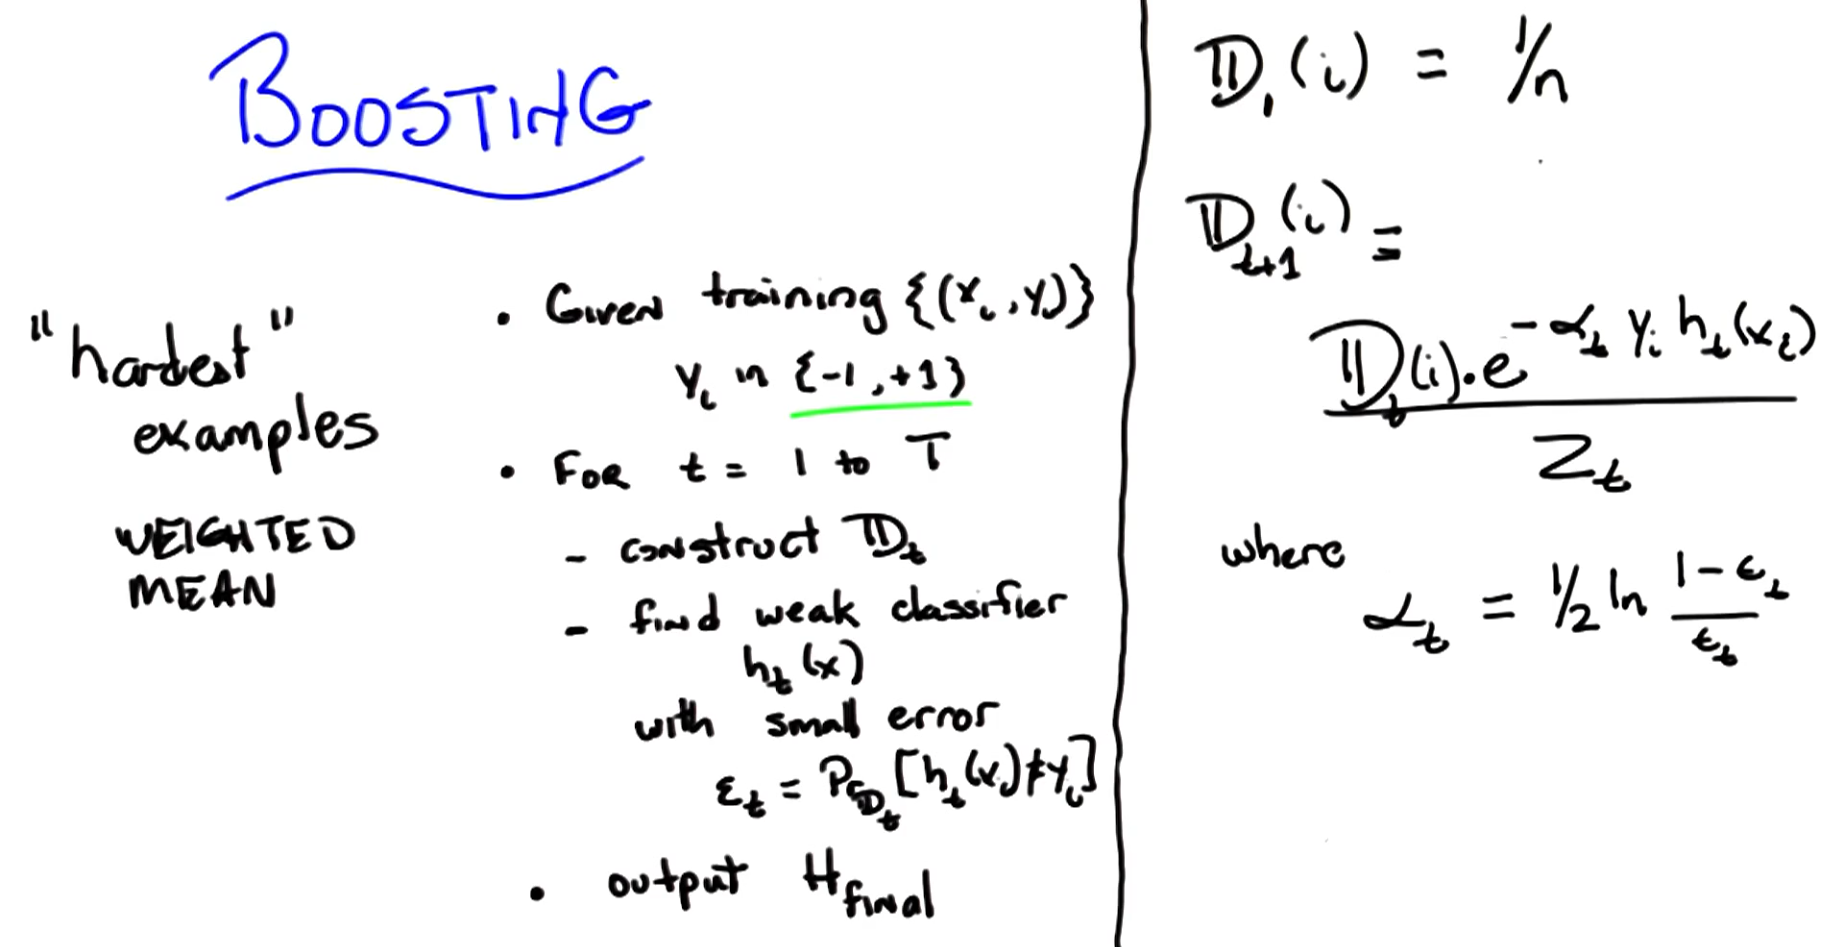 BOOSTING
"hardest"
examples
WEIGHTED
MEAN
• Given training {(xᵢ, yᵢ)}
yᵢ in {-1, +1}
• For t = 1 to T
- construct 𝔻ₜ
- find weak classifier
hₜ(x)
with small error
εₜ = Pr_𝔻ₜ [hₜ(xᵢ) ≠ yᵢ]
• output H_final
𝔻₁(i) = 1/n
𝔻ₜ₊₁(i) =
𝔻ₜ(i) · e^(-αₜ yᵢ hₜ(xᵢ))
Zₜ
where
αₜ = 1/2 ln (1-εₜ)/εₜ